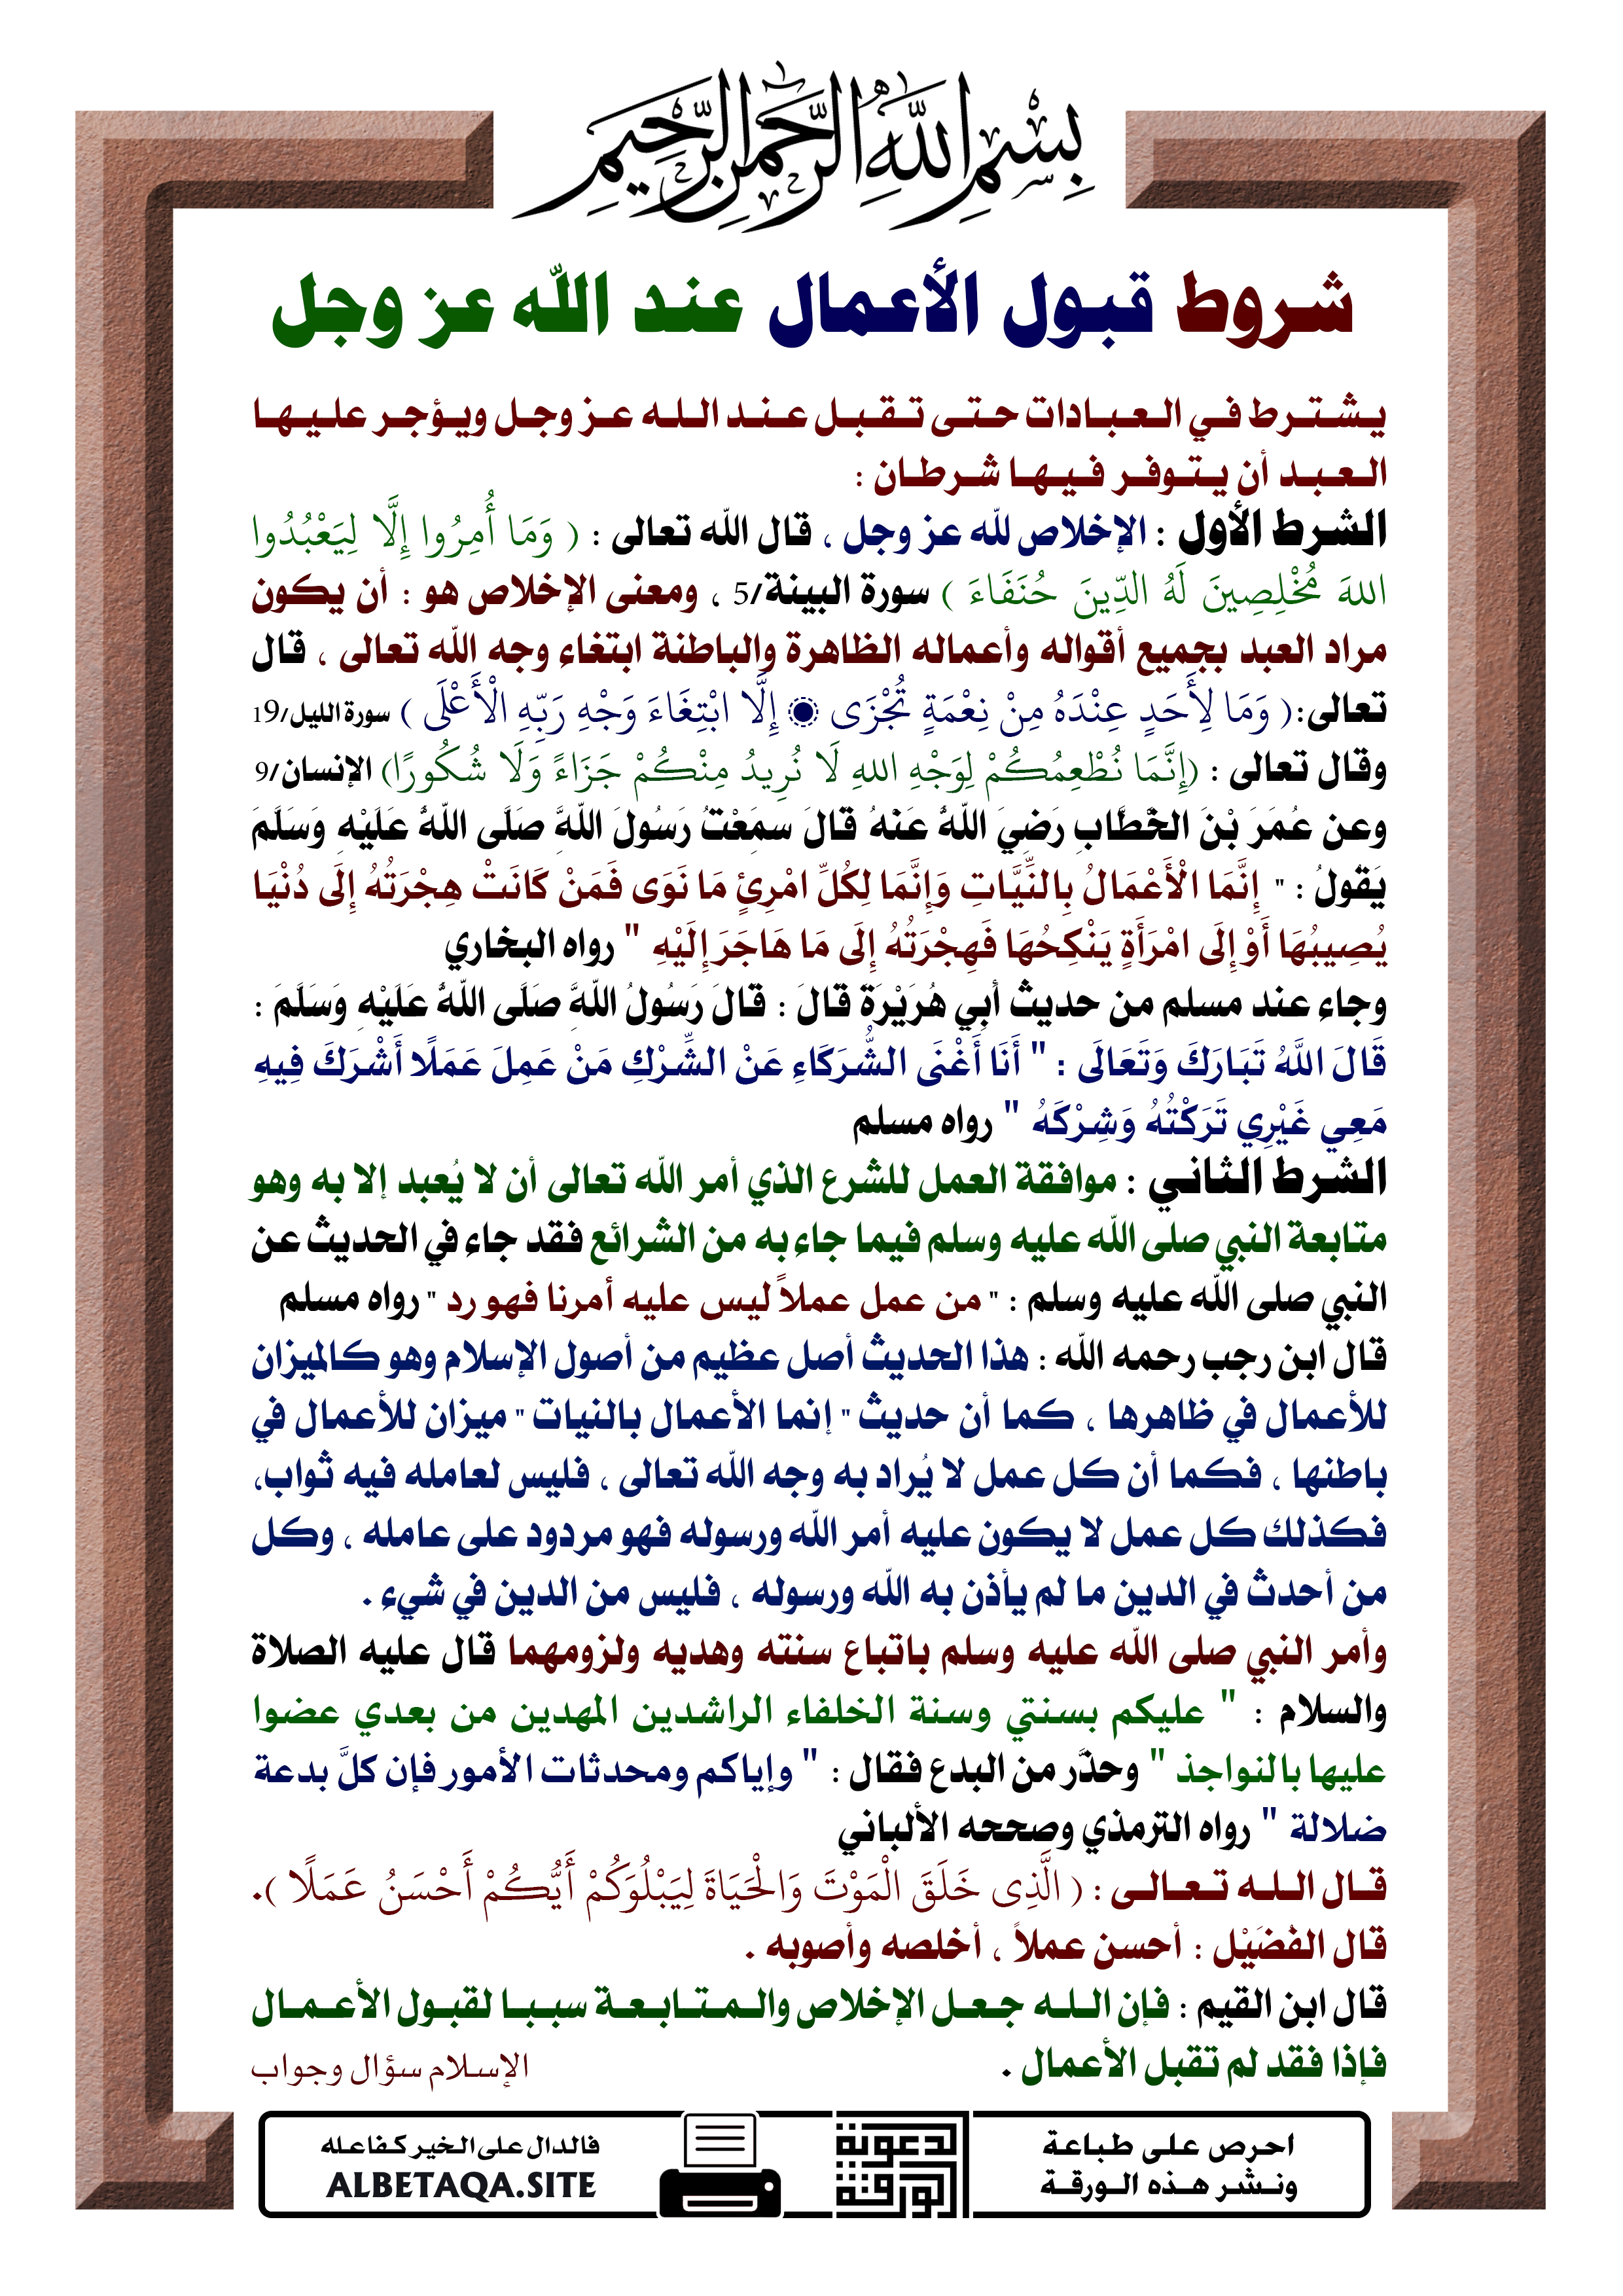 بِسْمِ اللَّهِ الرَّحْمَنِ الرَّحِيمِ
شروط قبول الأعمال عند الله عز وجل
يشترط في العبادات حتى تقبل عند الله عز وجل ويؤجر عليها
العبد أن يتوفر فيها شرطان :
الشرط الأول : الإخلاص لله عز وجل ، قال الله تعالى : ( وَمَا أُمِرُوا إِلَّا لِيَعْبُدُوا
اللهَ مُخْلِصِينَ لَهُ الدِّينَ حُنَفَاءَ ) سورة البينة/5 ، ومعنى الإخلاص هو : أن يكون
مراد العبد بجميع أقواله وأعماله الظاهرة والباطنة ابتغاء وجه الله تعالى ، قال
تعالى:( وَمَا لِأَحَدٍ عِنْدَهُ مِنْ نِعْمَةٍ تُجْزَى ۝ إِلَّا ابْتِغَاءَ وَجْهِ رَبِّهِ الْأَعْلَى ) سورة الليل/19
وقال تعالى : (إِنَّمَا نُطْعِمُكُمْ لِوَجْهِ اللهِ لَا نُرِيدُ مِنْكُمْ جَزَاءً وَلَا شُكُورًا) الإنسان/9
وعن عُمَرَ بْنَ الخَّطَّابِ رَضِيَ اللَّهُ عَنْهُ قَالَ سَمِعْتُ رَسُولَ اللَّهِ صَلَّى اللَّهُ عَلَيْهِ وَسَلَّمَ
يَقُولُ : " إِنَّمَا الْأَعْمَالُ بِالنِّيَّاتِ وَإِنَّمَا لِكُلِّ امْرِئٍ مَا نَوَى فَمَنْ كَانَتْ هِجْرَتُهُ إِلَى دُنْيَا
يُصِيبُهَا أَوْ إِلَى امْرَأَةٍ يَنْكِحُهَا فَهِجْرَتُهُ إِلَى مَا هَاجَرَ إِلَيْهِ " رواه البخاري
وجاء عند مسلم من حديث أَبِي هُرَيْرَةَ قَالَ : قَالَ رَسُولُ اللَّهِ صَلَّى اللَّهُ عَلَيْهِ وَسَلَّمَ :
قَالَ اللَّهُ تَبَارَكَ وَتَعَالَى : " أَنَا أَغْنَى الشُّرَكَاءِ عَنْ الشِّرْكِ مَنْ عَمِلَ عَمَلًا أَشْرَكَ فِيهِ
مَعِي غَيْرِي تَرَكْتُهُ وَشِرْكَهُ " رواه مسلم
الشرط الثاني : موافقة العمل للشرع الذي أمر الله تعالى أن لا يُعبد إلا به وهو
متابعة النبي صلى الله عليه وسلم فيما جاء به من الشرائع فقد جاء في الحديث عن
النبي صلى الله عليه وسلم : " من عمل عملاً ليس عليه أمرنا فهو رد " رواه مسلم
قال ابن رجب رحمه الله : هذا الحديث أصل عظيم من أصول الإسلام وهو كالميزان
للأعمال في ظاهرها ، كما أن حديث " إنما الأعمال بالنيات " ميزان للأعمال في
باطنها ، فكما أن كل عمل لا يُراد به وجه الله تعالى ، فليس لعامله فيه ثواب،
فكذلك كل عمل لا يكون عليه أمر الله ورسوله فهو مردود على عامله ، وكل
من أحدث في الدين ما لم يأذن به الله ورسوله ، فليس من الدين في شيء .
وأمر النبي صلى الله عليه وسلم باتباع سنته وهديه ولزومهما قال عليه الصلاة
والسلام : " عليكم بسنتي وسنة الخلفاء الراشدين المهدين من بعدي عضوا
عليها بالنواجذ " وحذَّر من البدع فقال : " وإياكم ومحدثات الأمور فإن كلَّ بدعة
ضلالة " رواه الترمذي وصححه الألباني
قال الله تعالى : ( الَّذِى خَلَقَ الْمَوْتَ وَالْحَيَاةَ لِيَبْلُوَكُمْ أَيُّكُمْ أَحْسَنُ عَمَلًا ).
قال الفُضَيْل : أحسن عملاً ، أخلصه وأصوبه .
قال ابن القيم : فإن الله جعل الإخلاص والمتابعة سببا لقبول الأعمال
فإذا فقد لم تقبل الأعمال .
الإسلام سؤال وجواب
احرص على طباعة
ونشر هذه الورقة
الورقة الدعوية
فالدال على الخير كفاعله
ALBETAQA.SITE